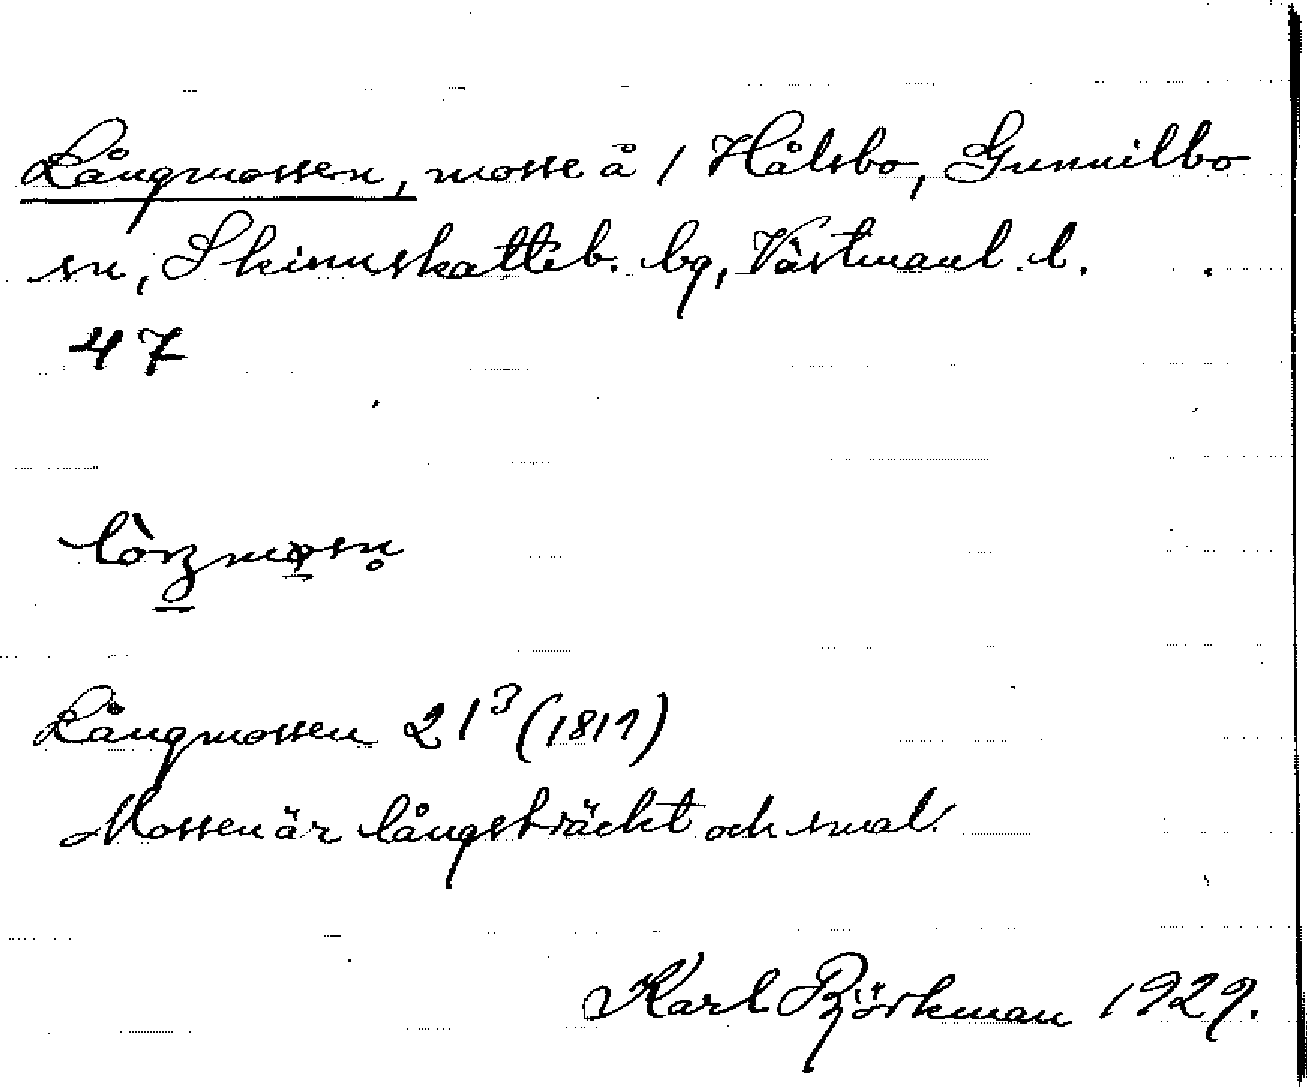 Långmossen, mosse å 1 Hålsbo, Gunnilbo
sn, Skinnskatteb. bg, Västmanl. l.
47
Långmossen 21³ (1811)
Mossen är långsträckt och smal.
Karl Björkman 1929.